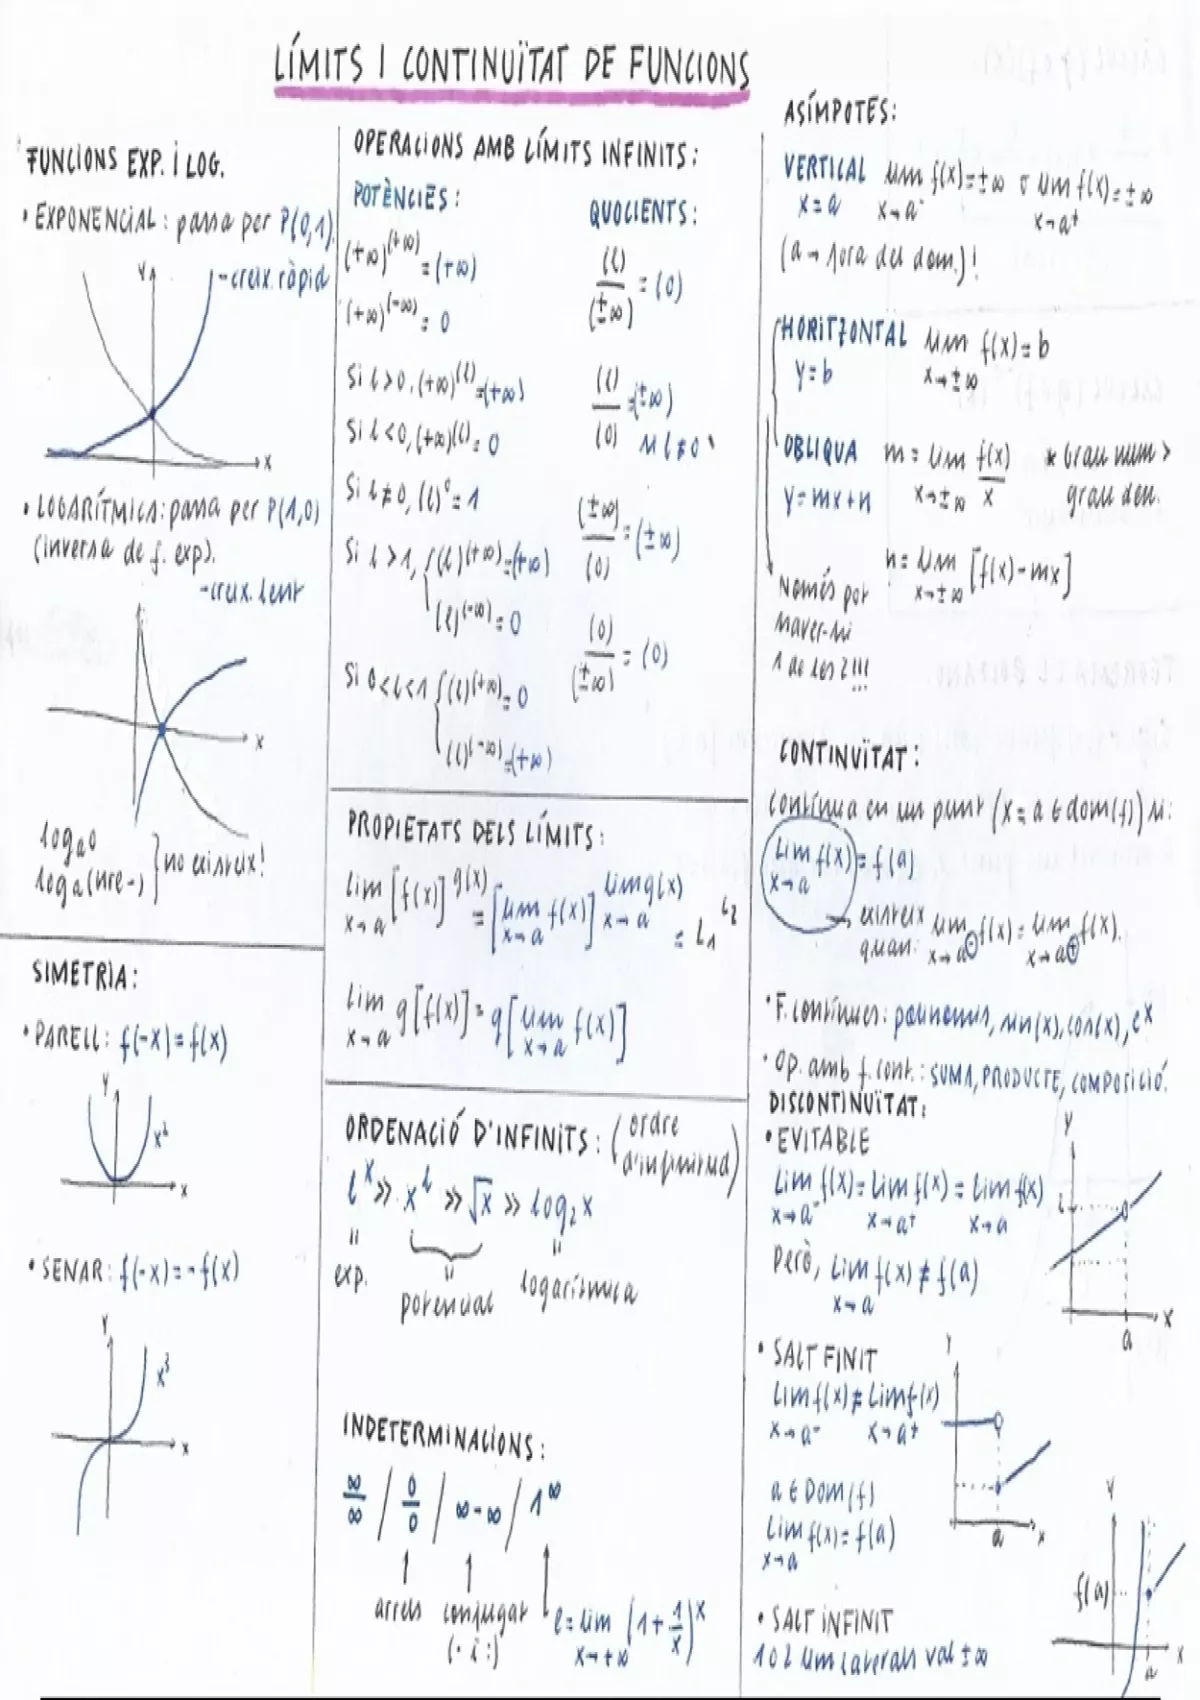 LÍMITS I CONTINUÏTAT DE FUNCIONS
FUNCIONS EXP. I LOG.
• EXPONENCIAL: passa per P(0,1).
-creix. ràpid
Y
X
• LOGARÍTMICA: passa per P(1,0)
(inversa de f. exp).
-creix. lent
X
logₐ0
logₐ(nre-) } no existeix!
SIMETRIA:
• PARELL: f(-x) = f(x)
Y
x²
X
• SENAR: f(-x) = -f(x)
Y
x³
X
OPERACIONS AMB LÍMITS INFINITS:
POTÈNCIES:
(+∞)^(+∞) = (+∞)
(+∞)^(-∞) = 0
Si l>0, (+∞)^(l) = (+∞)
Si l<0, (+∞)^(l) = 0
Si l≠0, (l)^0 = 1
Si l>1, { (l)^(+∞) = (+∞)
(l)^(-∞) = 0
Si 0<l<1 { (l)^(+∞) = 0
(l)^(-∞) = (+∞)
QUOCIENTS:
(l)/(±∞) = (0)
(l)/(0) = (±∞) si l≠0
(±∞)/(0) = (±∞)
(0)/(±∞) = (0)
PROPIETATS DELS LÍMITS:
lim x→a [f(x)]^g(x) = [lim x→a f(x)]^(lim x→a g(x)) = L₁^L₂
lim x→a g[f(x)] = g[lim x→a f(x)]
ORDENACIÓ D'INFINITS: (ordre
d'infinitud)
l^x >> x^l >> √x >> log₂x
exp.
potencial
logarísmica
INDETERMINACIONS:
∞/∞ / 0/0 / ∞-∞ / 1^∞
arrels
conjugat
(· i :)
e = lim x→+∞ (1 + 1/x)^x
ASÍMPOTES:
VERTICAL lim x→a⁻ f(x) = ±∞ o lim x→a⁺ f(x) = ±∞
x=a
(a → fora del dom.)!
HORITZONTAL lim x→±∞ f(x) = b
y=b
OBLIQUA m = lim x→±∞ f(x)/x * Grau num >
grau den.
y=mx+n
n = lim x→±∞ [f(x)-mx]
Només pot
haver-hi
1 de les 2!!!
CONTINUÏTAT:
contínua en un punt (x=a ∈ dom(f)) si:
lim x→a f(x) = f(a)
→ existeix
quan: lim x→a⊖ f(x) = lim x→a⊕ f(x).
• F. contínues: polinomis, sin(x), cos(x), e^x
• Op. amb f. cont.: SUMA, PRODUCTE, COMPOSICIÓ.
DISCONTINUÏTAT:
• EVITABLE
lim x→a⁻ f(x) = lim x→a⁺ f(x) = lim x→a f(x)
Però, lim x→a f(x) ≠ f(a)
Y
L
a
X
• SALT FINIT
lim x→a⁻ f(x) ≠ lim x→a⁺ f(x)
a ∈ Dom(f)
lim x→a f(x) = f(a)
Y
a
X
• SALT INFINIT
1 o 2 lim laterals val ±∞
Y
f(a)
a
X